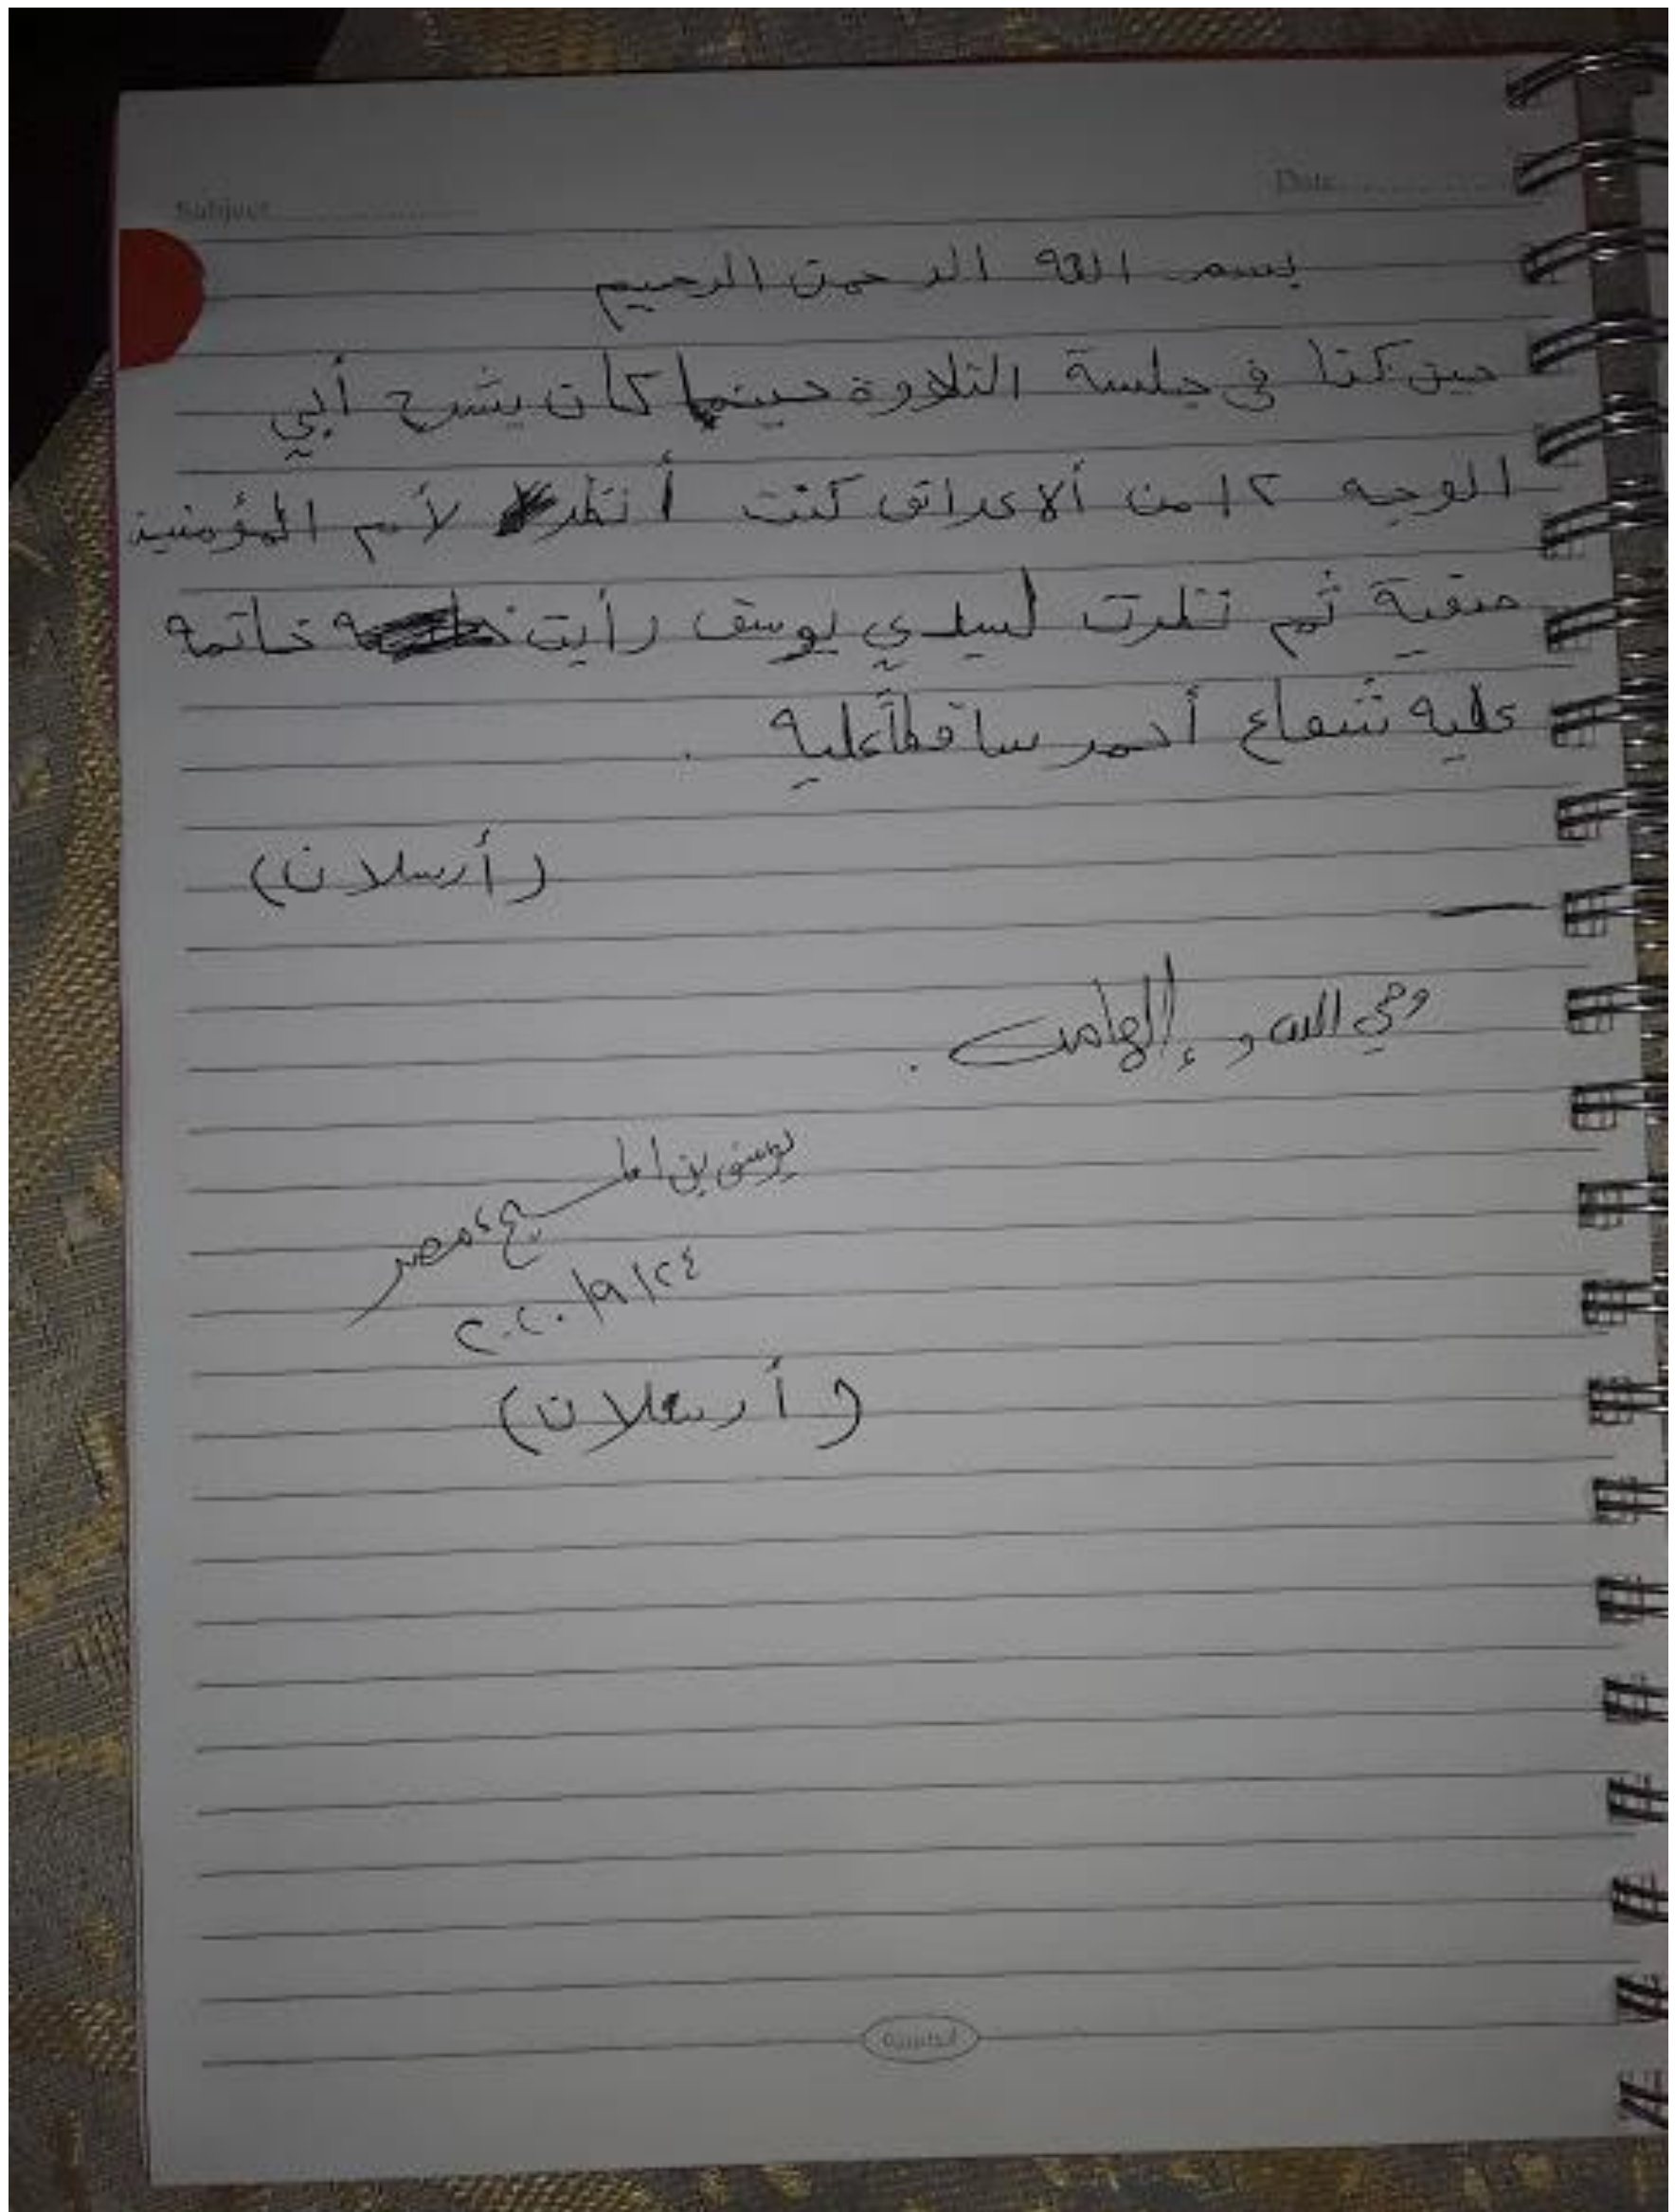 Subject
Date
بسم الله الرحمن الرحيم
حين كنا في جلسة التلاوة حينما كان يشرح أبي
الوجه ١٢ من ألاعراف كنت أنظر لأم المؤمنين
صفية ثم نظرت لسيدي يوسف رأيت خاتمه
عليه شعاع أحمر ساقطاً عليه .
(أرسلان)
وحي الله و إلهامه .
يوسف بن المسيح ، مصر
٢٠٢٠/٩/٢٤
(أرسلان)